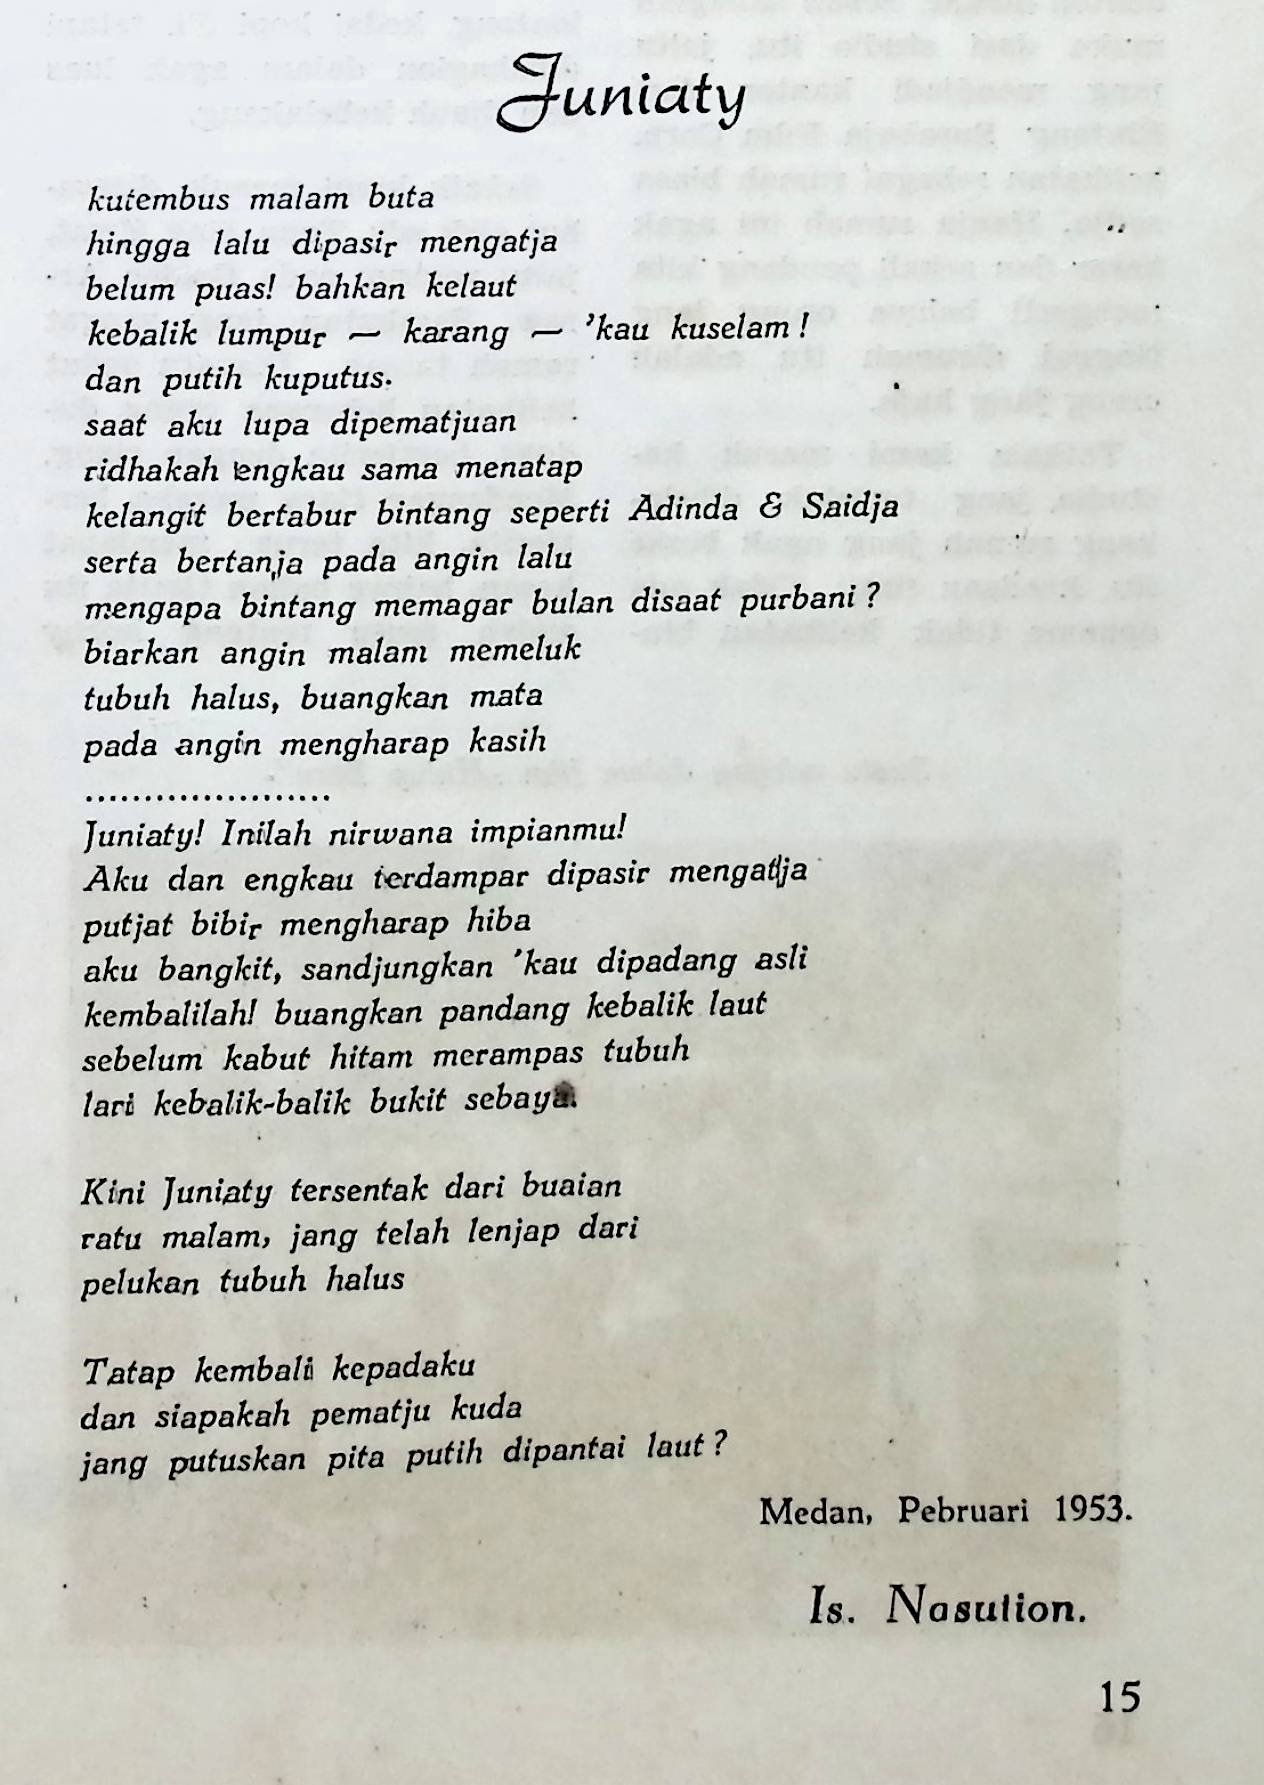 Juniaty
kutembus malam buta
hingga lalu dipasir mengatja
belum puas! bahkan kelaut
kebalik lumpur — karang — 'kau kuselam!
dan putih kuputus.
saat aku lupa dipematjuan
ridhakah engkau sama menatap
kelangit bertabur bintang seperti Adinda & Saidja
serta bertanja pada angin lalu
mengapa bintang memagar bulan disaat purbani?
biarkan angin malam memeluk
tubuh halus, buangkan mata
pada angin mengharap kasih
.....................
Juniaty! Inilah nirwana impianmu!
Aku dan engkau terdampar dipasir mengatja
putjat bibir mengharap hiba
aku bangkit, sandjungkan 'kau dipadang asli
kembalilah! buangkan pandang kebalik laut
sebelum kabut hitam merampas tubuh
lari kebalik-balik bukit sebaya.
Kini Juniaty tersentak dari buaian
ratu malam, jang telah lenjap dari
pelukan tubuh halus
Tatap kembali kepadaku
dan siapakah pematju kuda
jang putuskan pita putih dipantai laut?
Medan, Pebruari 1953.
Is. Nasution.
15